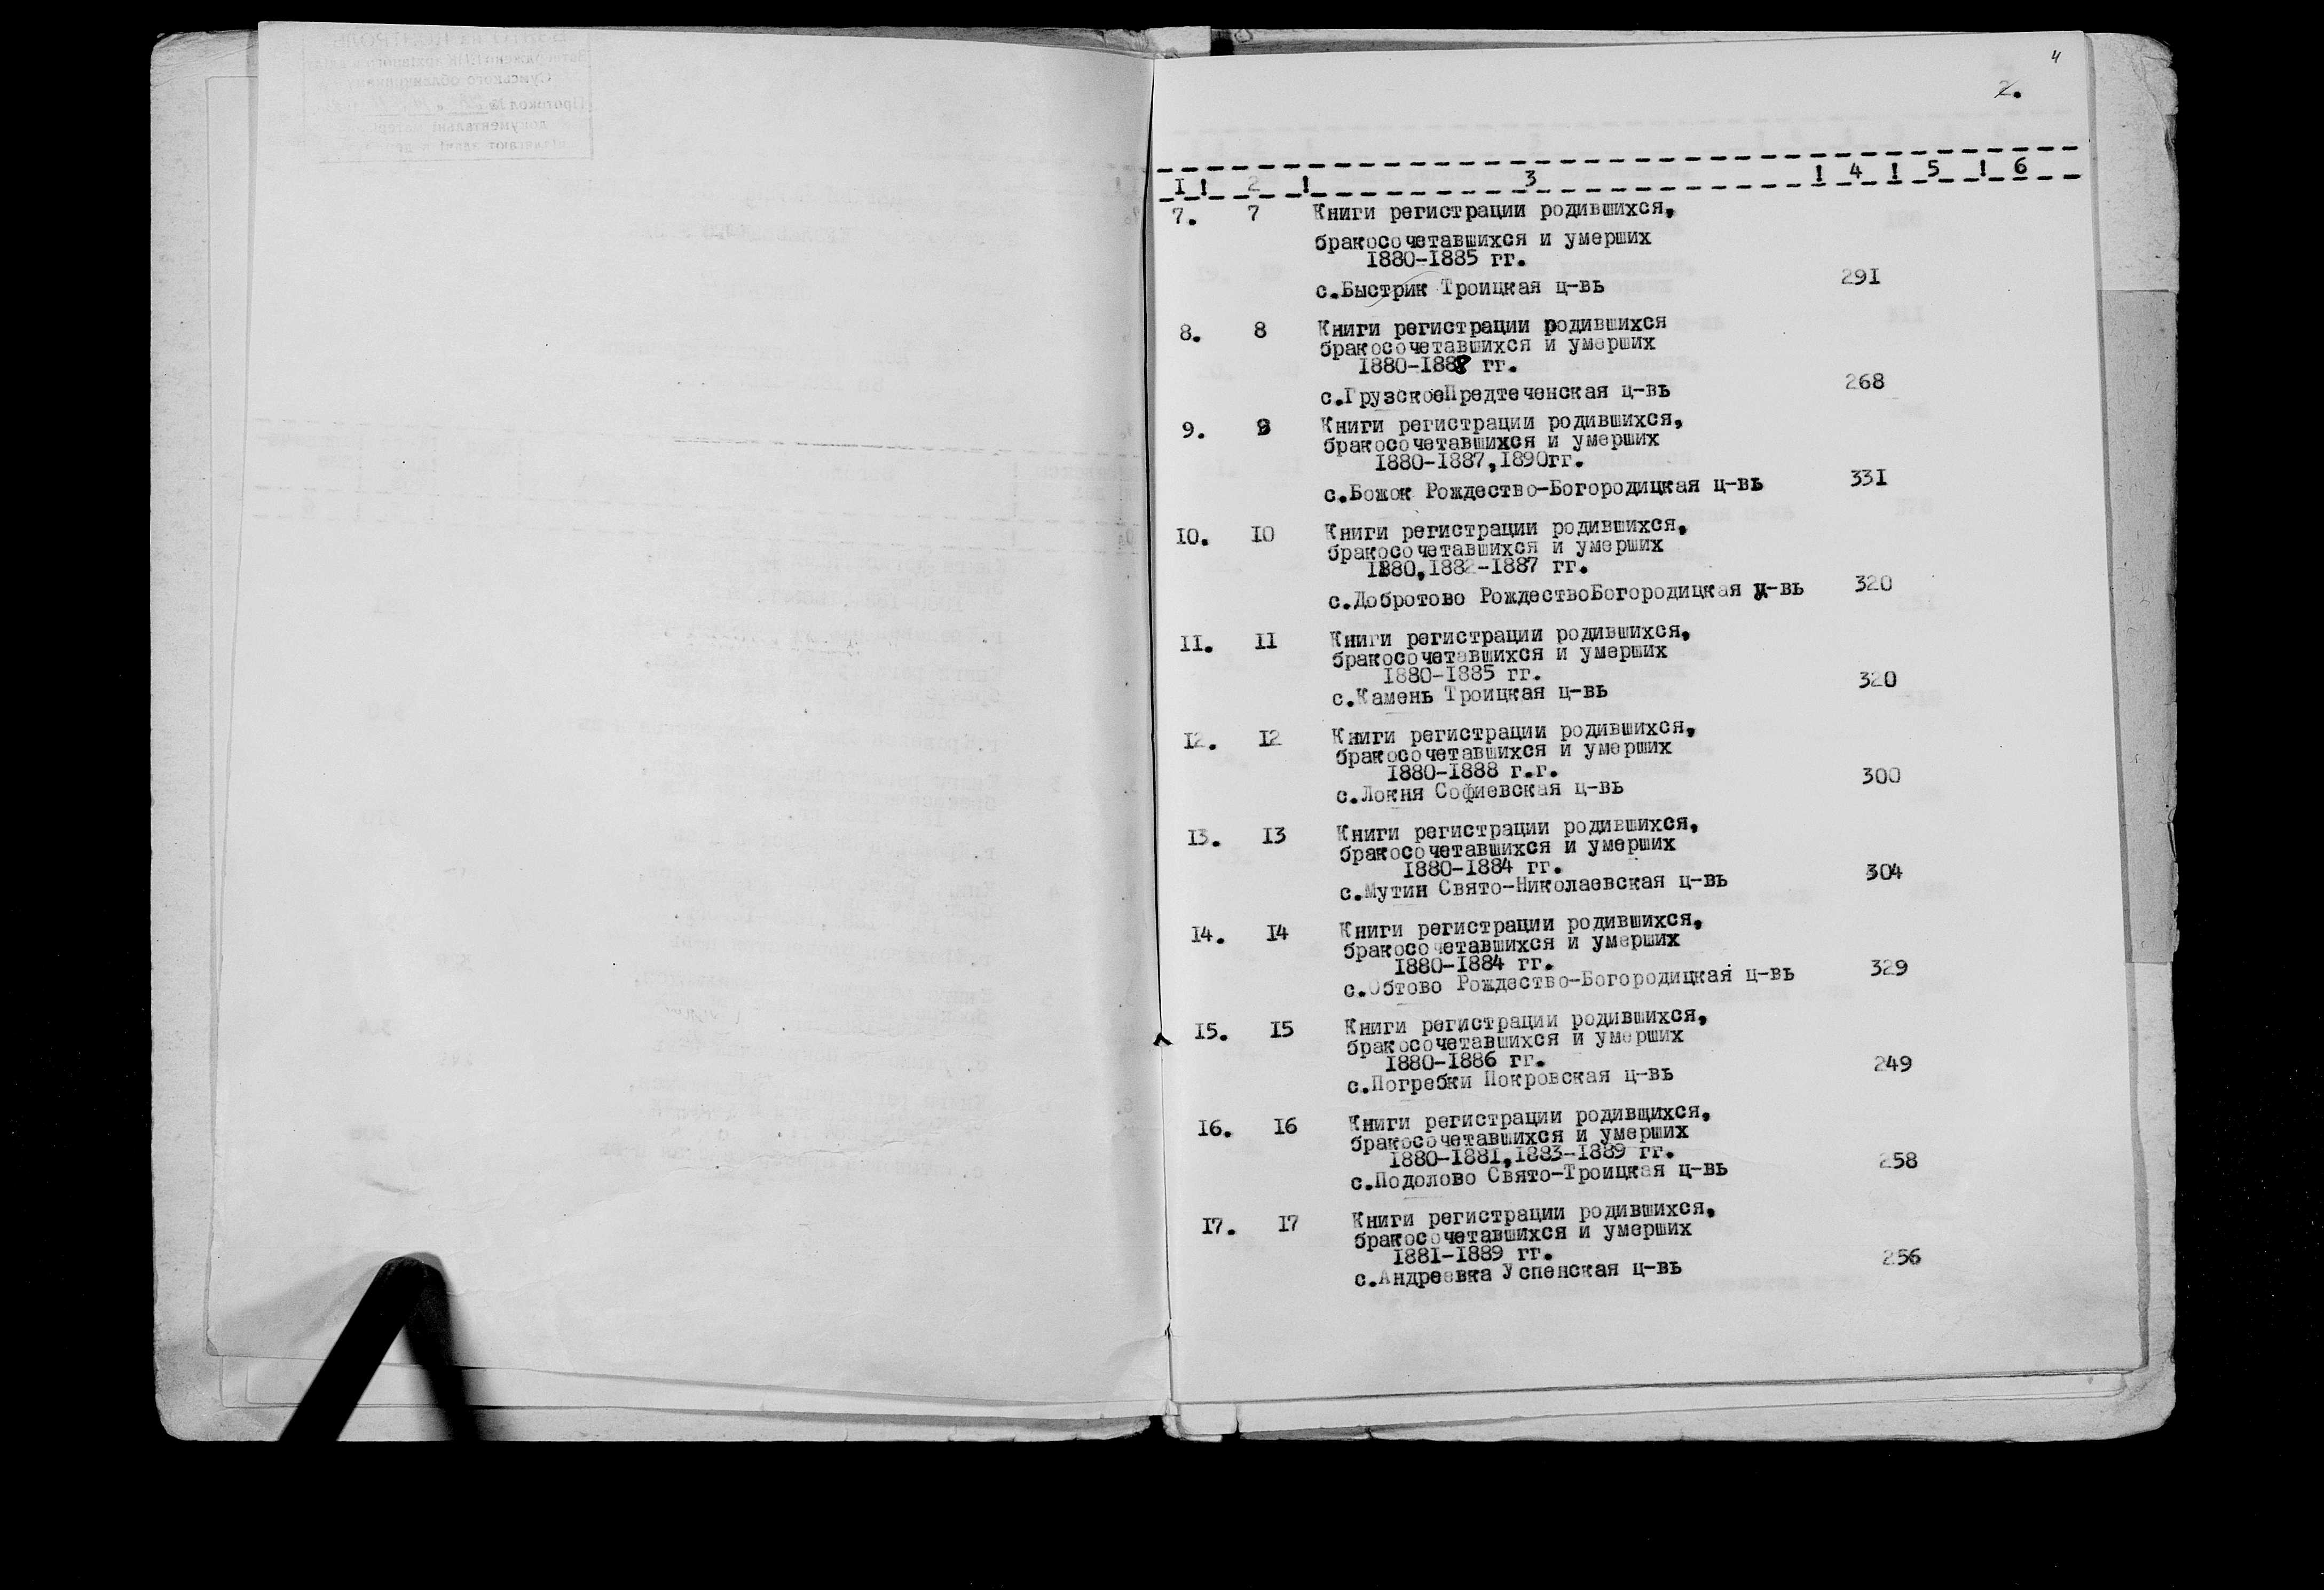 4
2.
I ! 2 ! 3 ! 4 ! 5 ! 6
7. 7 Книги регистрации родившихся,
бракосочетавшихся и умерших
1880-1885 гг.
с.Быстрик Троицкая ц-вь 291
8. 8 Книги регистрации родившихся
бракосочетавшихся и умерших
1880-1888 гг.
с.ГрузскоеПредтеченская ц-вь 268
9. 9 Книги регистрации родившихся,
бракосочетавшихся и умерших
1880-1887,1890гг.
с.Божок Рождество-Богородицкая ц-вь 331
10. 10 Книги регистрации родившихся,
бракосочетавшихся и умерших
1880,1882-1887 гг.
с.Добротово РождествоБогородицкая ц-вь 320
11. 11 Книги регистрации родившихся,
бракосочетавшихся и умерших
1880-1885 гг.
с.Камень Троицкая ц-вь 320
12. 12 Книги регистрации родившихся,
бракосочетавшихся и умерших
1880-1888 г.г.
с.Локня Софиевская ц-вь 300
13. 13 Книги регистрации родившихся,
бракосочетавшихся и умерших
1880-1884 гг.
с.Мутин Свято-Николаевская ц-вь 304
14. 14 Книги регистрации родившихся,
бракосочетавшихся и умерших
1880-1884 гг.
с.Обтово Рождество-Богородицкая ц-вь 329
15. 15 Книги регистрации родившихся,
бракосочетавшихся и умерших
1880-1886 гг.
с.Погребки Покровская ц-вь 249
16. 16 Книги регистрации родившихся,
бракосочетавшихся и умерших
1880-1881,1883-1889 гг.
с.Подолово Свято-Троицкая ц-вь 258
17. 17 Книги регистрации родившихся,
бракосочетавшихся и умерших
1881-1889 гг.
с.Андреевка Успенская ц-вь 256